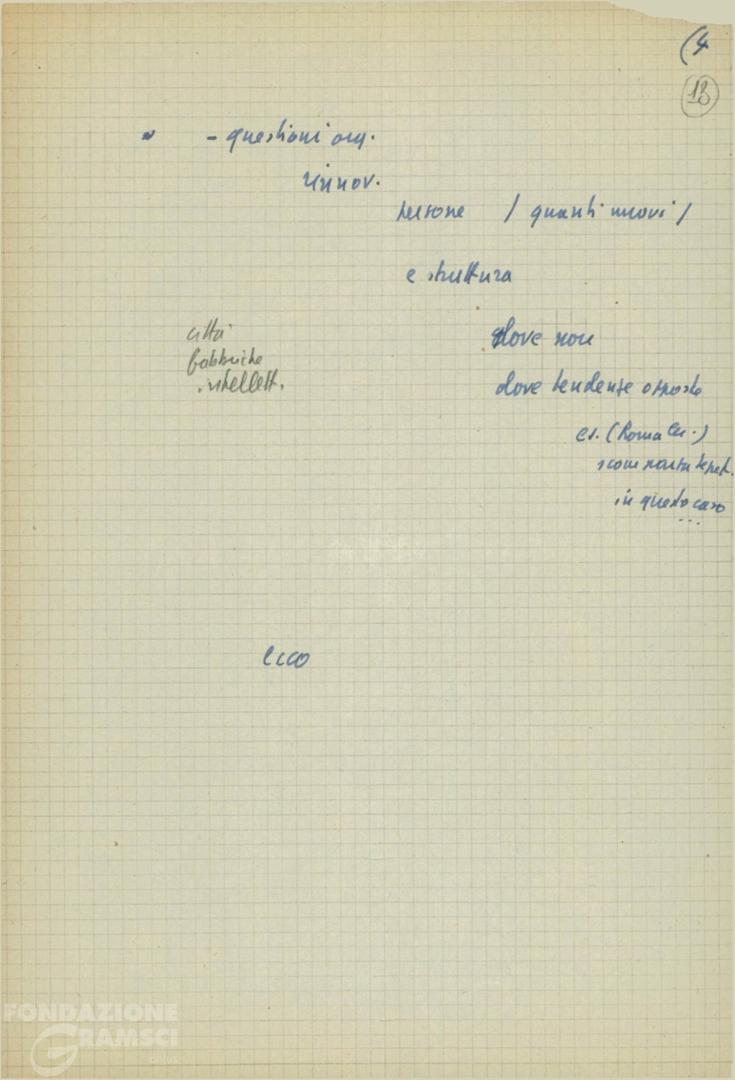 (4
18
- questioni org.
rinnov.
persone / quanti nuovi /
e struttura
città
fabbriche
intellett.
dove non
dove tendenze opposte
es. (Roma
in questo caso
...
Ecco
FONDAZIONE
GRAMSCI